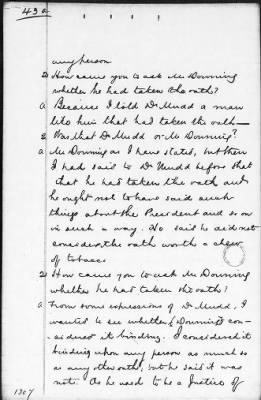 43 a
any person
Q How came you to ask Mr Downing
whether he had taken the oath?
A Because I told Dr Mudd a man
like him that had taken the oath—
Q Was that Dr Mudd or Mr Downing?
A Mr Downing as I have stated, but then
I had said to Dr Mudd before that
that he had taken the oath and
he ought not to have said such
things about the President and so on
in such a way. He said he did not
consider the oath worth a chew
of tobacco.
Q How came you to ask Mr Downing
whether he had taken the oath?
A From some expressions of Dr Mudd, I
wanted to see whether (Downing) con-
sidered it binding. I considered it
binding upon any person as much so
as any other oath, but he said it was
not. As he used to be a Justice of
1307